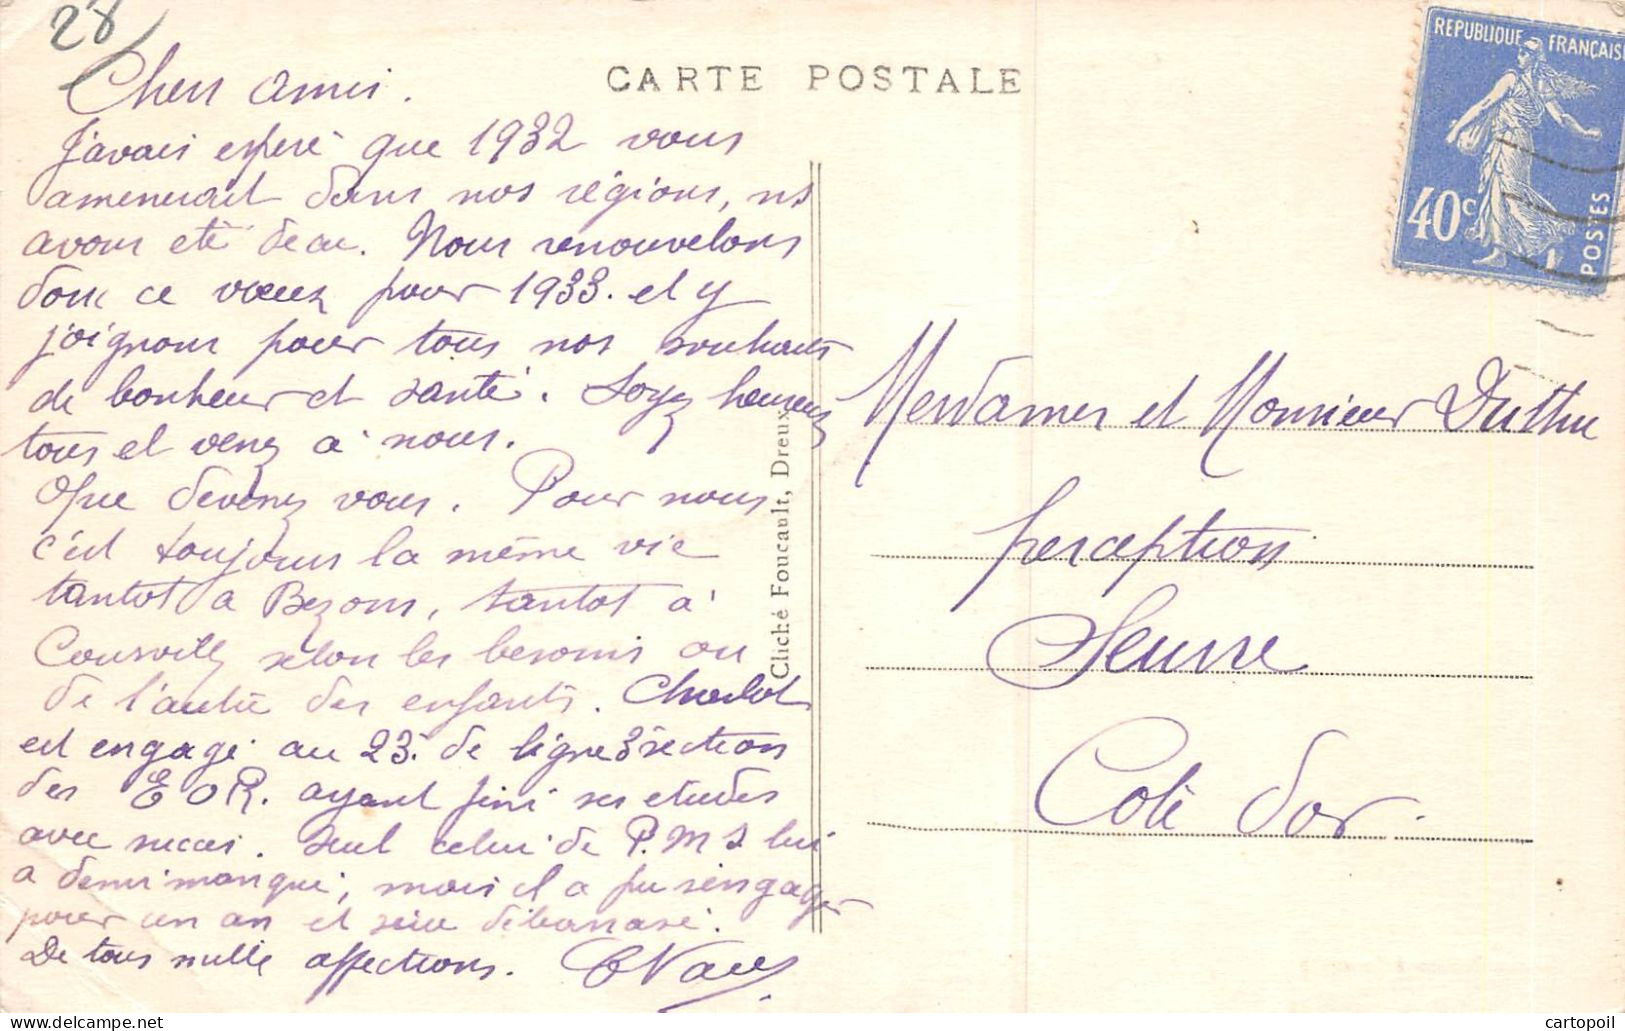 28
CARTE POSTALE
REPUBLIQUE FRANÇAIS
40c
POSTES
Chers amis.
J'avais espéré que 1932 vous
amenerait dans nos régions, ns
avons été decu. Nous renouvelons
donc ce voeux pour 1933. et y
joignons pour tous nos souhaits
de bonheur et santé. Soyez heureux
tous et venez à nous.
Que devenez vous. Pour nous
c'est toujours la même vie
tantot a Bezons, tantot à
Courville selon les besoins ou
de l'autre des enfants. Charlot
est engagé au 23. de ligne 3e section
des E O R. ayant fini ses etudes
avec succes. Seul celui de P.M S lui
a demi manqué, mais il a pu s'engager
pour un an et sera débarrassé.
De tous mille affections.
Cliché Foucault, Dreux
Mesdames et Monsieur Duthu
perception
Seurre
Cote d'or.
cartopoil